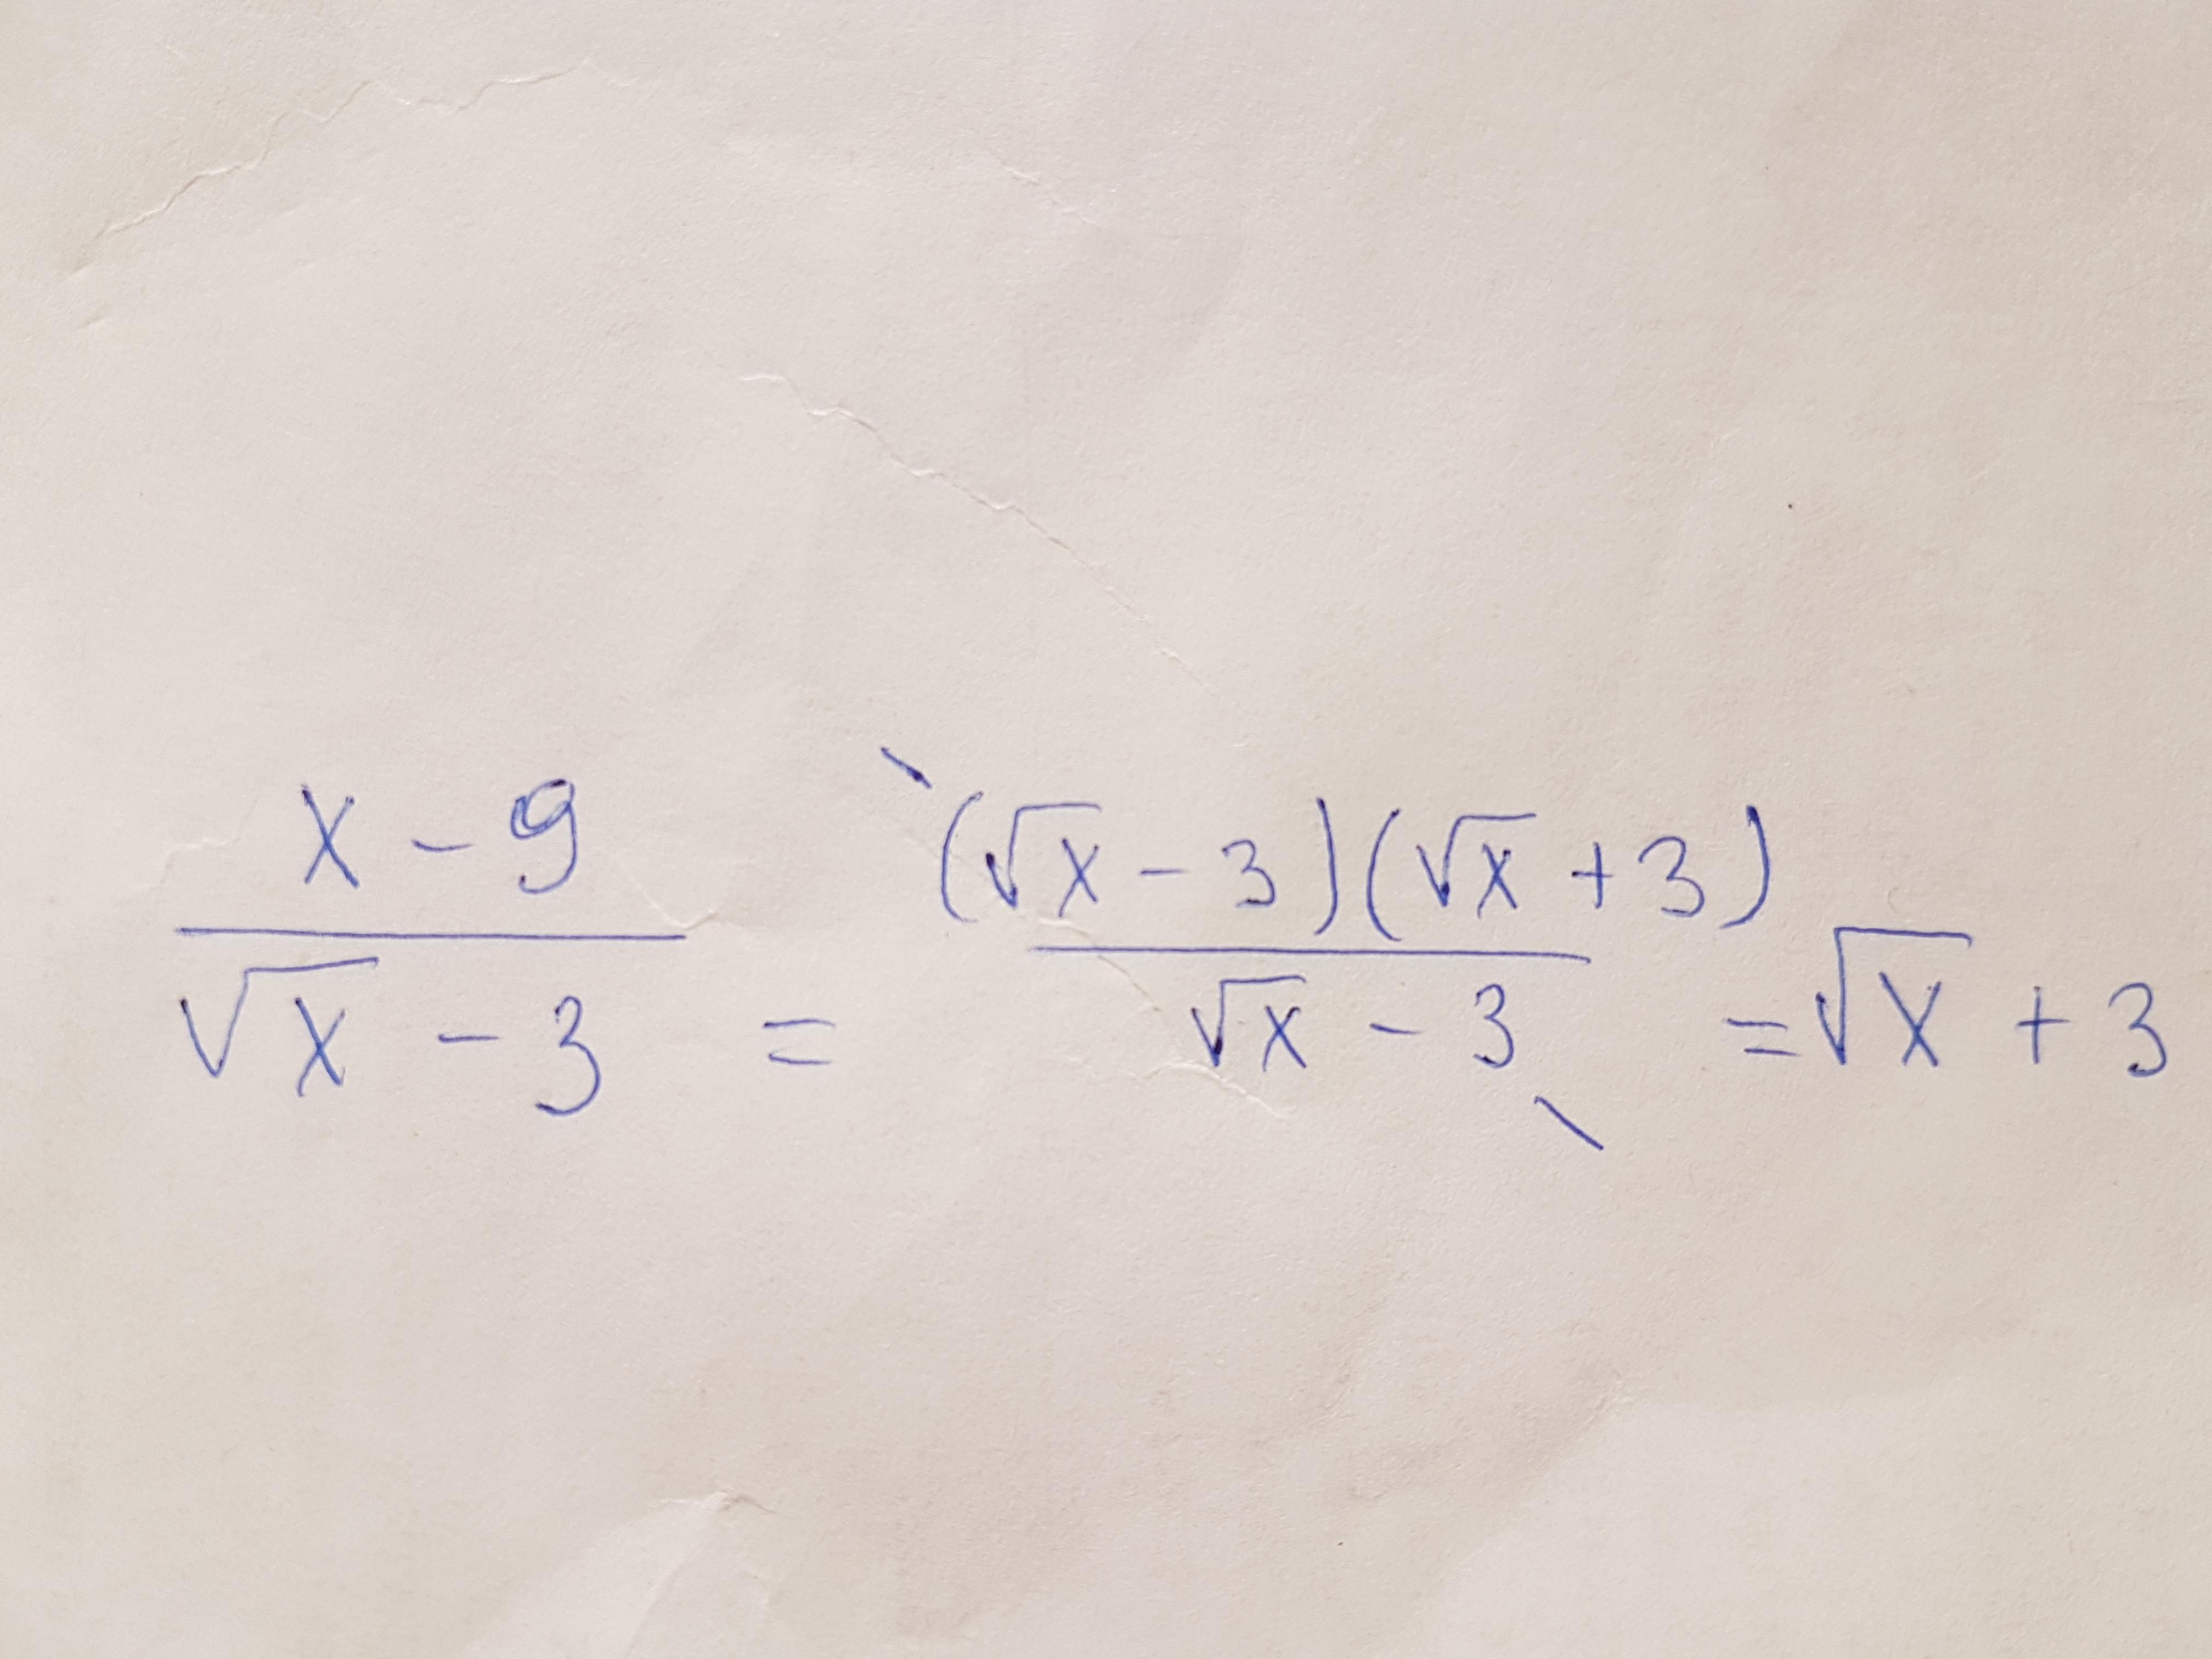 x - 9 / √x - 3 = (√x - 3)(√x + 3) / √x - 3 = √x + 3